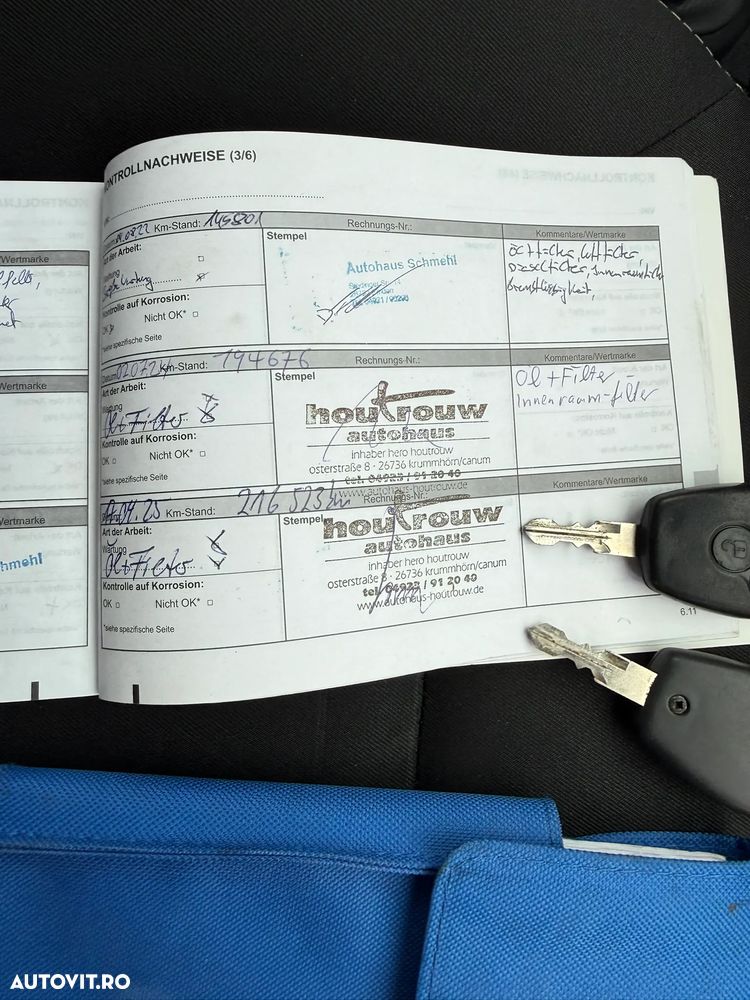 KONTROLLNACHWEISE (3/6)
Km-Stand: 145801
Rechnungs-Nr.:
Kommentare/Wertmarke
Art der Arbeit:
Wartung
Kontrolle auf Korrosion:
OK
Nicht OK*
*siehe spezifische Seite
Stempel
Autohaus Schmehl
Innenraumfilter
Bremsflüssigkeit,
Datum 020724 Km-Stand: 194676
Rechnungs-Nr.:
Kommentare/Wertmarke
Art der Arbeit:
Wartung
Öl+Filter
Kontrolle auf Korrosion:
OK
Nicht OK*
*siehe spezifische Seite
Stempel
houtrouw
autohaus
inhaber hero houtrouw
osterstraße 8 · 26736 krummhörn/canum
tel. 04923 / 91 20 40
www.autohaus-houtrouw.de
Öl + Filter
Innenraum-filter
04.25 Km-Stand: 216 523 km
Rechnungs-Nr.:
Kommentare/Wertmarke
Art der Arbeit:
Wartung
Öl+Filter
Kontrolle auf Korrosion:
OK
Nicht OK*
*siehe spezifische Seite
Stempel
houtrouw
autohaus
inhaber hero houtrouw
osterstraße 8 · 26736 krummhörn/canum
tel. 04923 / 91 20 40
www.autohaus-houtrouw.de
6.11
/Wertmarke
/Wertmarke
/Wertmarke
hmehl
AUTOVIT.RO